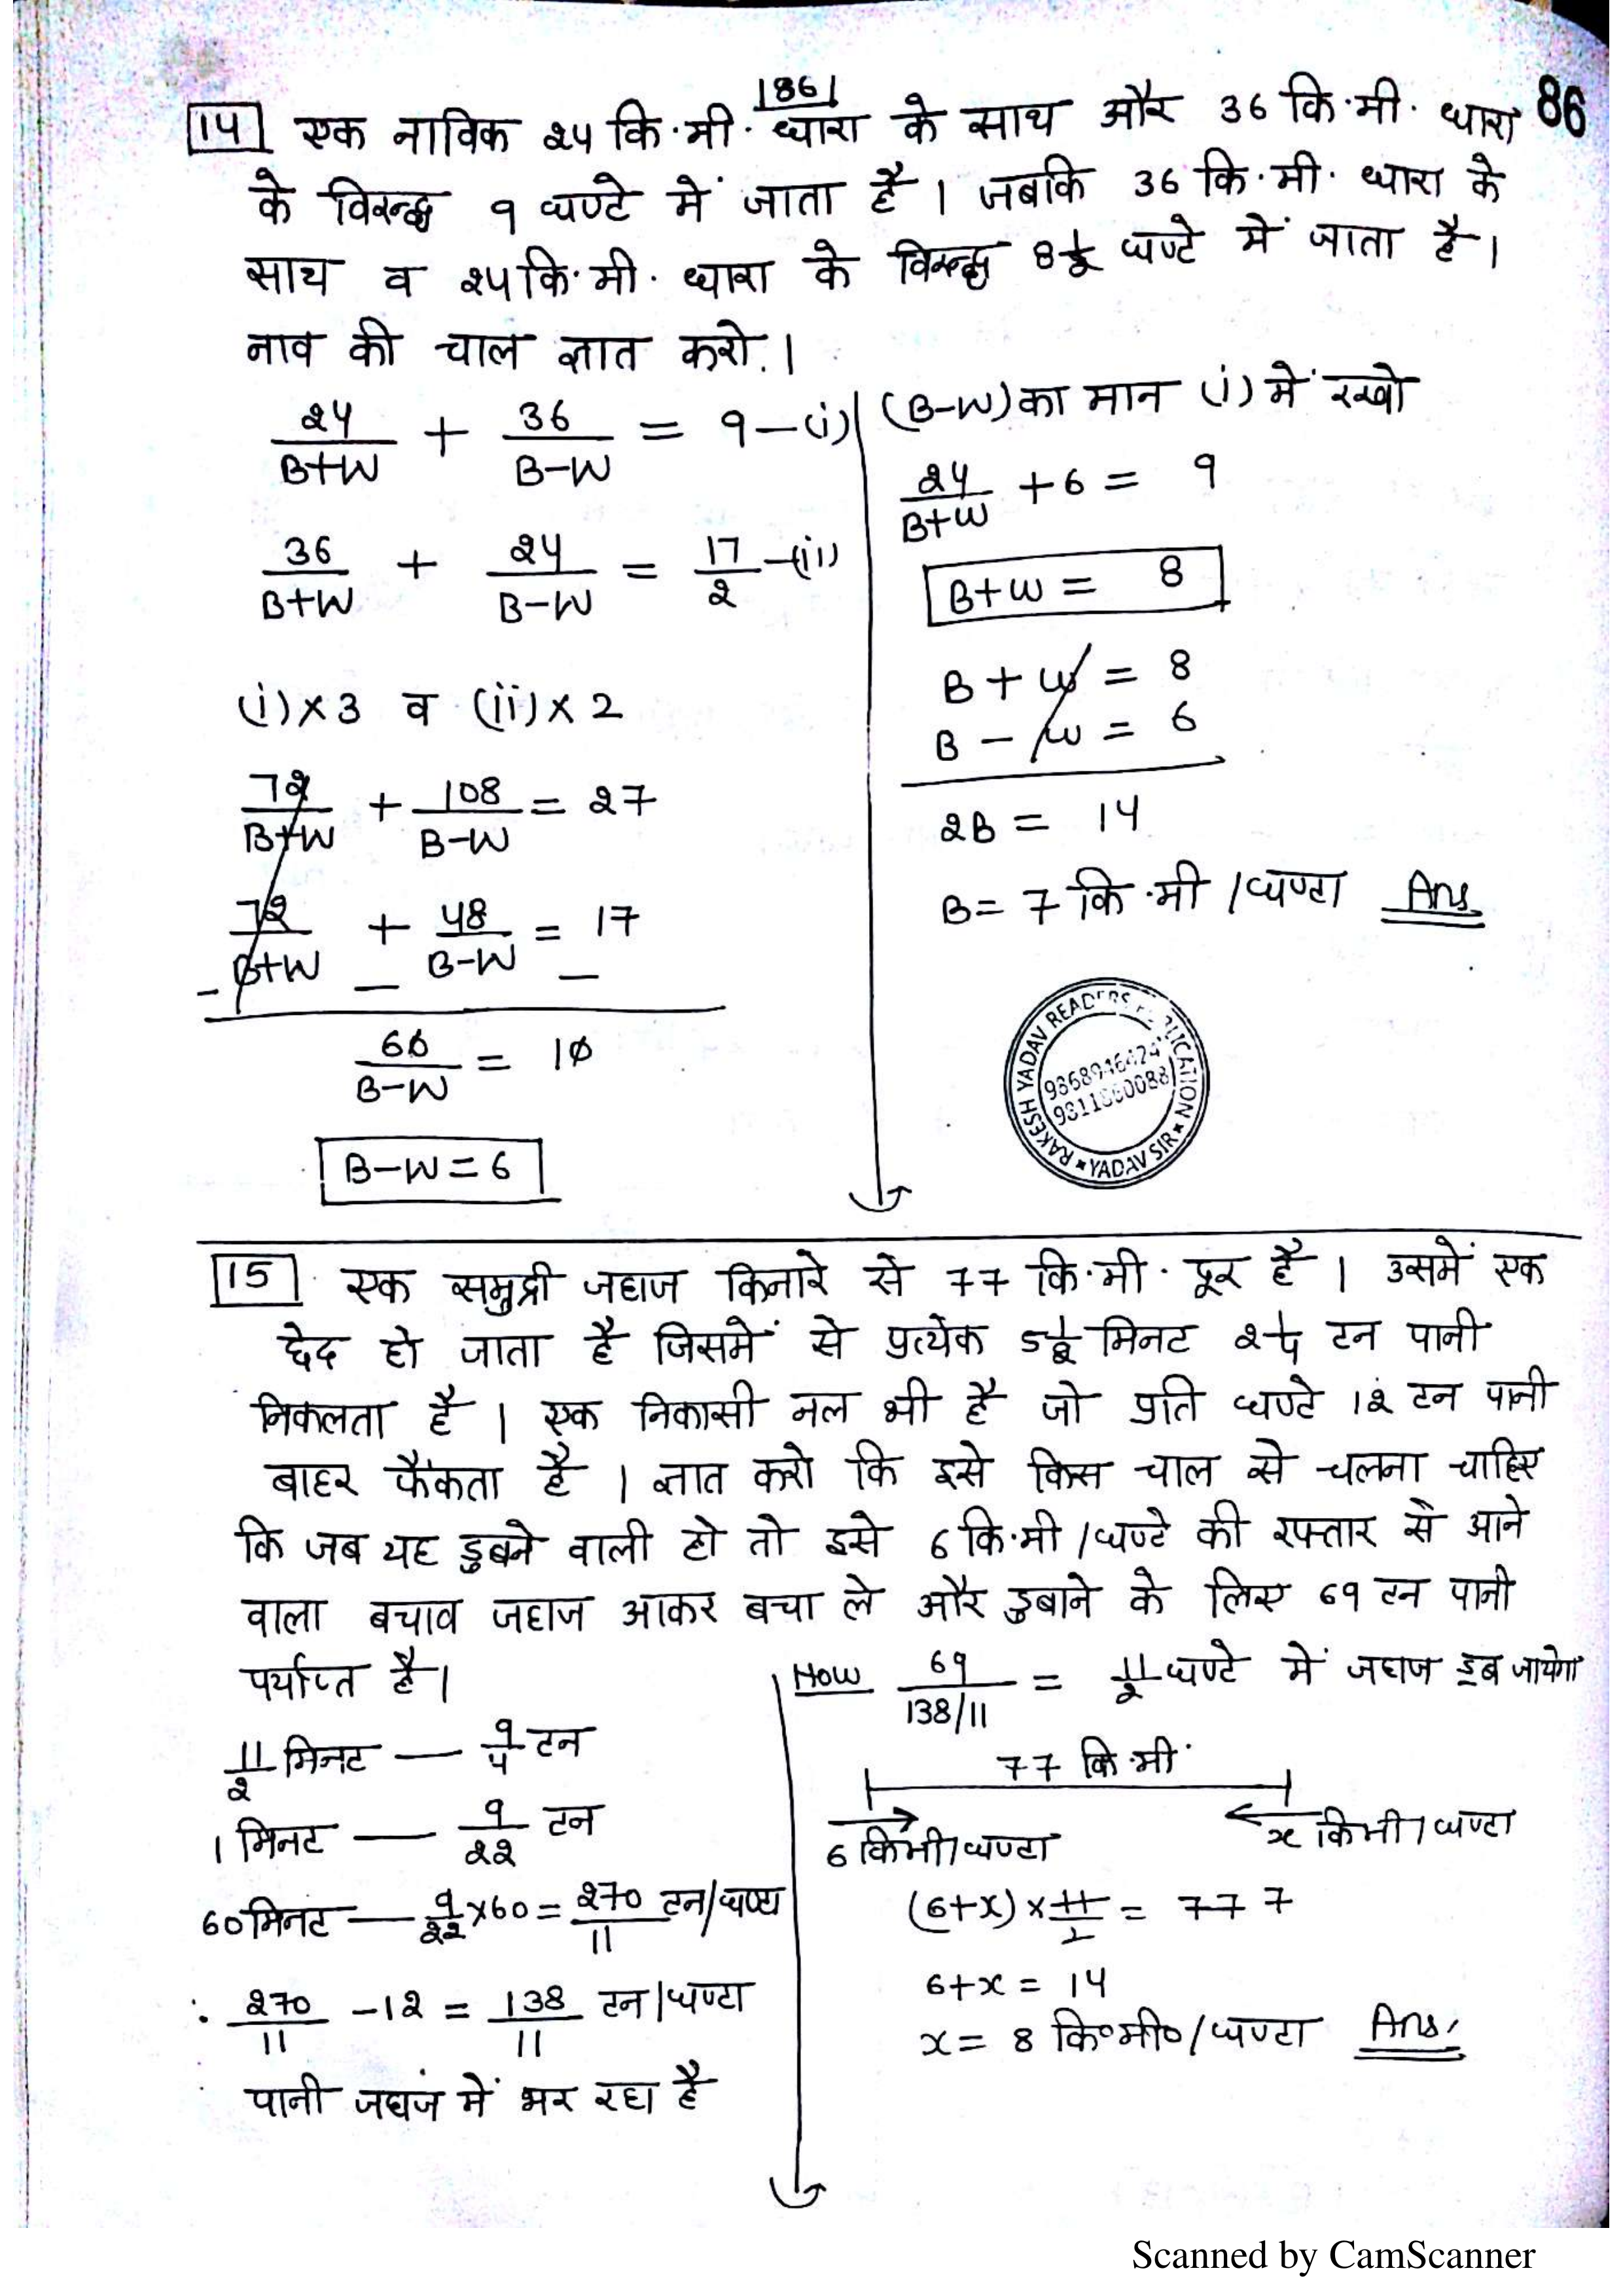 |86|
86
14 एक नाविक 24 कि.मी. धारा के साथ और 36 कि.मी. धारा
के विरुद्ध 9 घण्टे में जाता है। जबकि 36 कि.मी. धारा के
साथ व 24 कि.मी. धारा के विरुद्ध 8 1/2 घण्टे में जाता है।
नाव की चाल ज्ञात करो.।
24/(B+W) + 36/(B-W) = 9 -(i)
36/(B+W) + 24/(B-W) = 17/2 -(ii)
(i)×3 व (ii)×2
72/(B+W) + 108/(B-W) = 27
72/(B+W) + 48/(B-W) = 17
- - -
60/(B-W) = 10
B-W=6
(B-W) का मान (i) में रखो
24/(B+W) +6 = 9
B+W = 8
B + W = 8
B - W = 6
2B = 14
B= 7 कि.मी /घण्टा Ans
RAKESH YADAV READERS PUBLICATION
YADAV SIR
15 एक समुद्री जहाज किनारे से 77 कि.मी. दूर है। उसमें एक
छेद हो जाता है जिसमें से प्रत्येक 5 1/2 मिनट 2 1/4 टन पानी
निकलता है। एक निकासी नल भी है जो प्रति घण्टे 12 टन पानी
बाहर फैंकता है। ज्ञात करो कि इसे किस चाल से चलना चाहिए
कि जब यह डुबने वाली हो तो इसे 6 कि.मी /घण्टे की रफ्तार से आने
वाला बचाव जहाज आकर बचा ले और डुबाने के लिए 69 टन पानी
पर्याप्त है।
11/2 मिनट — 9/4 टन
1 मिनट — 9/22 टन
60 मिनट — 9/22 ×60 = 270/11 टन/घण्टा
270/11 -12 = 138/11 टन/घण्टा
पानी जहाज में भर रहा है
How 69/(138/11) = 11/2 घण्टे में जहाज डूब जायेगा
77 कि.मी
6 किमी/घण्टा x किमी/घण्टा
(6+x) × 11/2 = 77 7
6+x = 14
x = 8 कि०मी०/घण्टा Ans.
Scanned by CamScanner